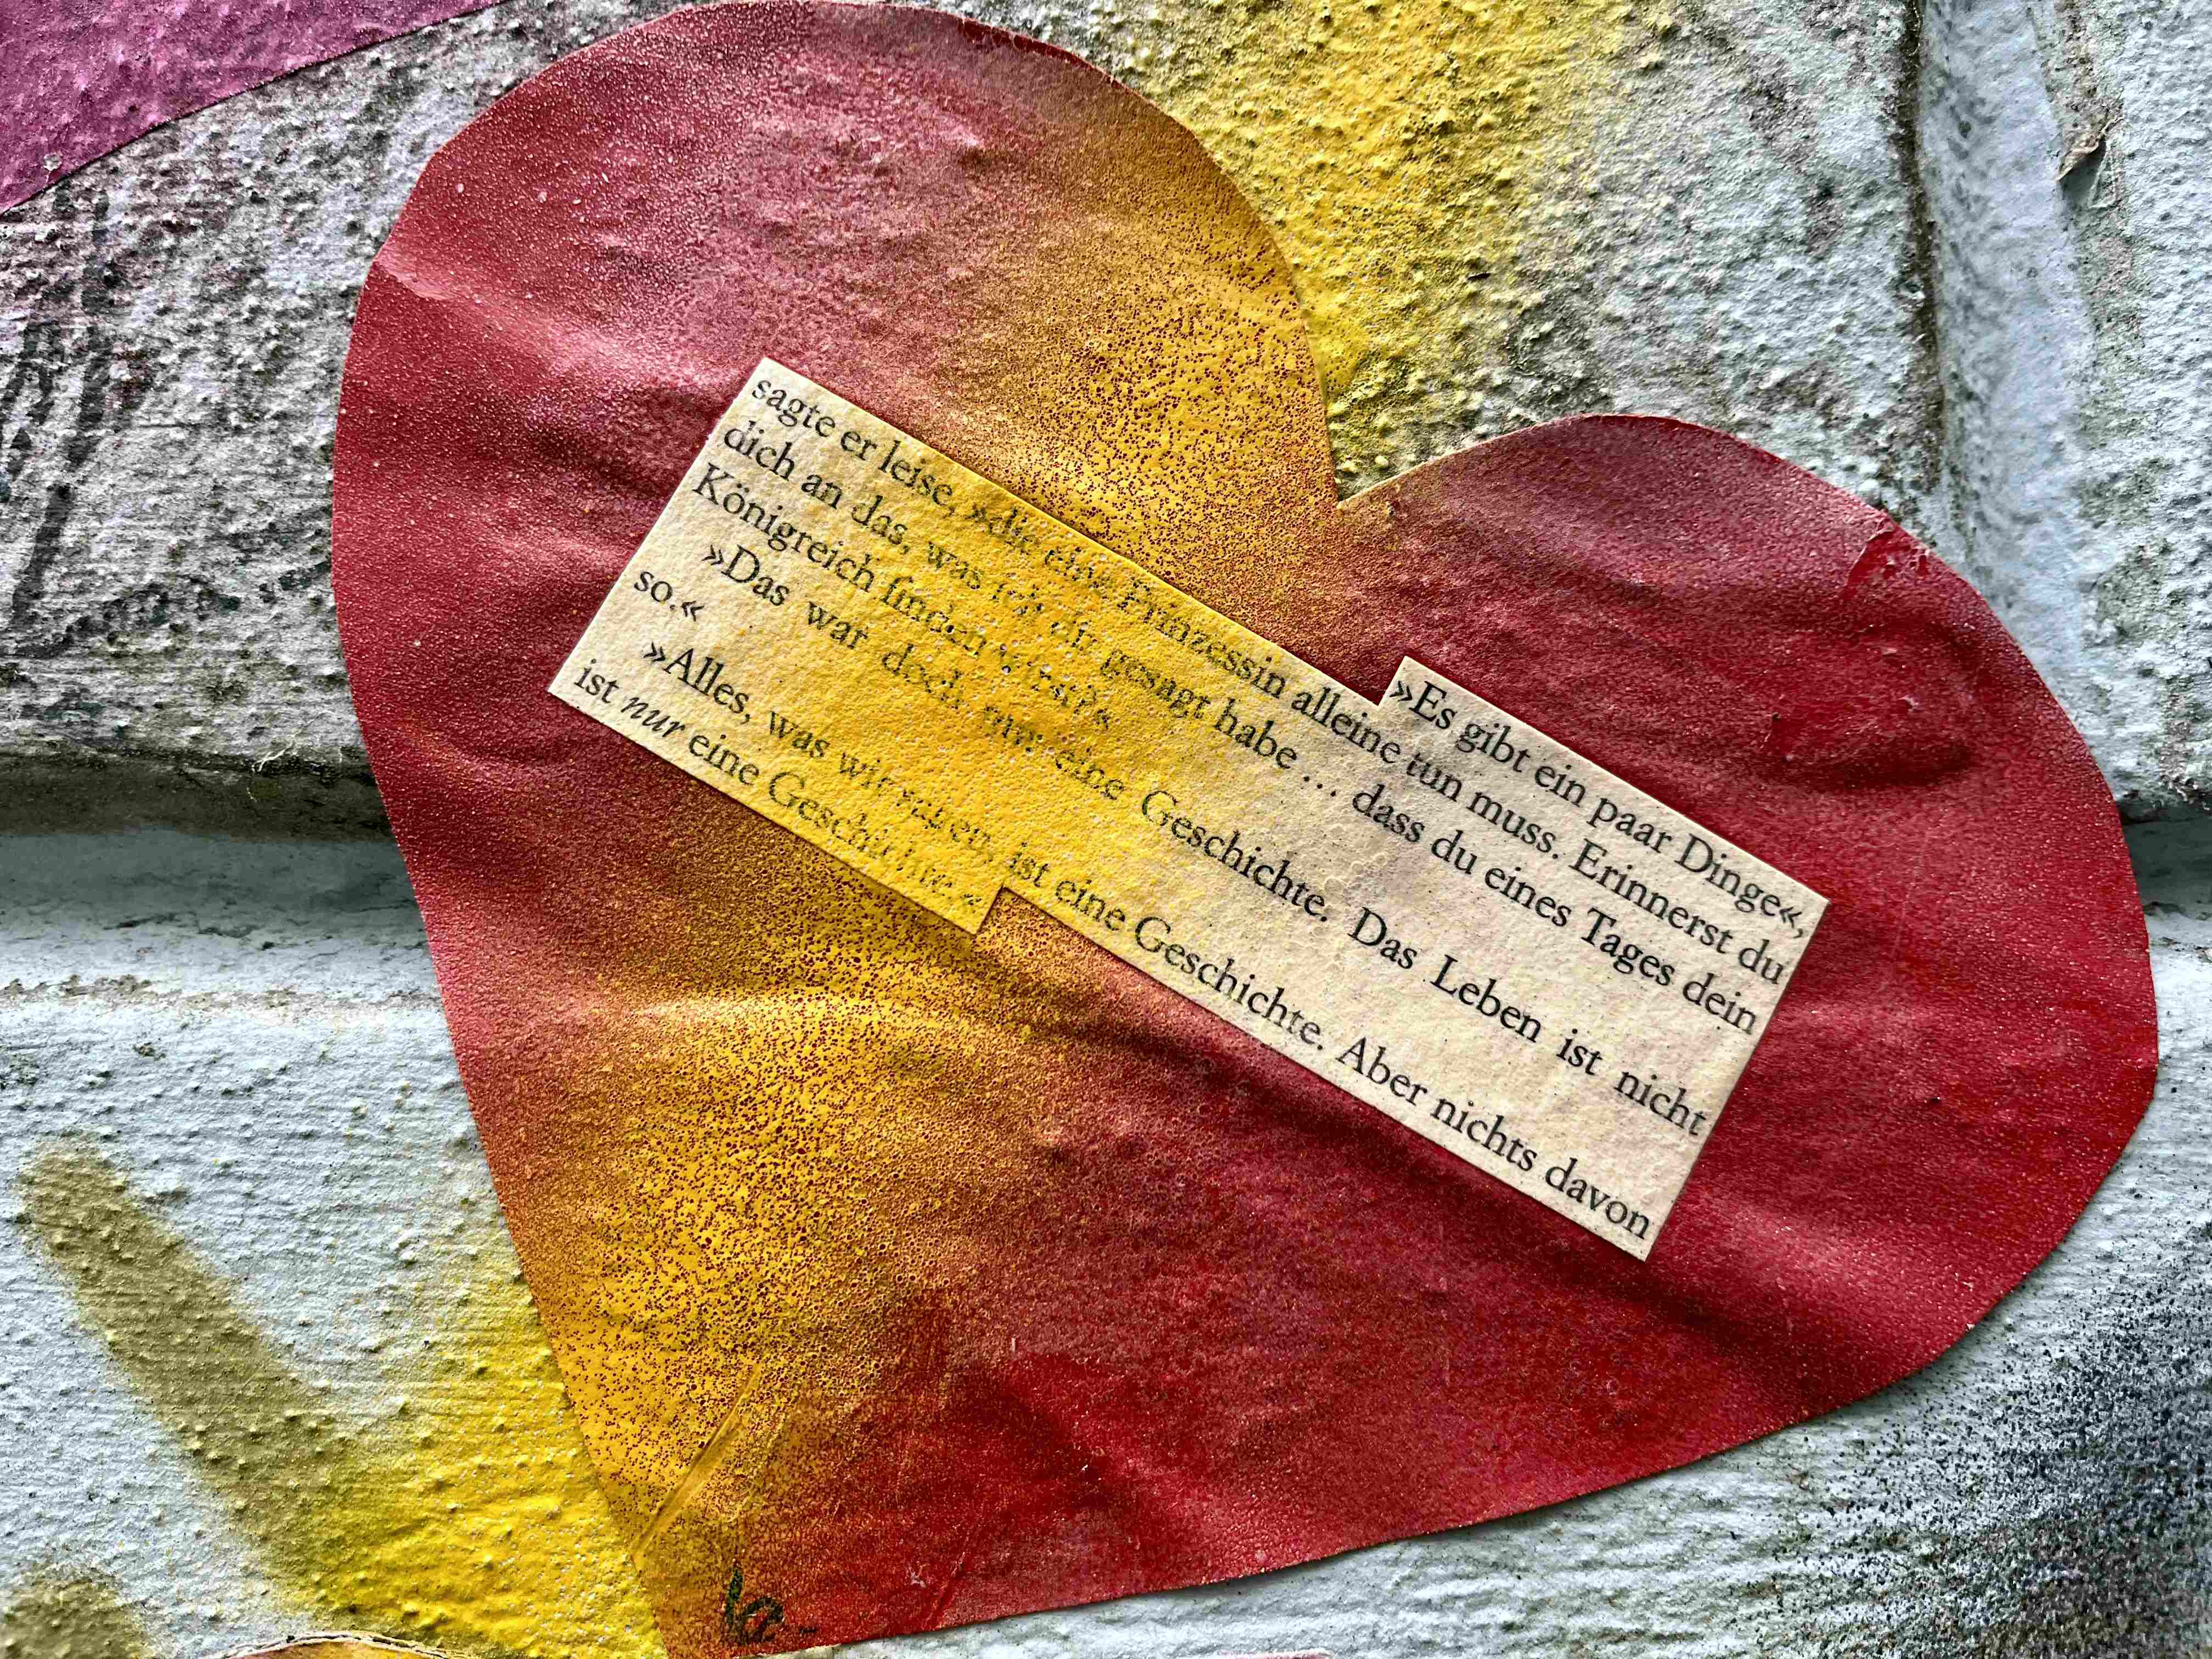 »Es gibt ein paar Dinge«,
sagte er leise, »die eine Prinzessin alleine tun muss. Erinnerst du
dich an das, was ich dir gesagt habe … dass du eines Tages dein
Königreich finden wirst?«
»Das war doch nur eine Geschichte. Das Leben ist nicht
so.«
»Alles, was wir ist eine Geschichte. Aber nichts davon
ist nur eine Geschichte.«